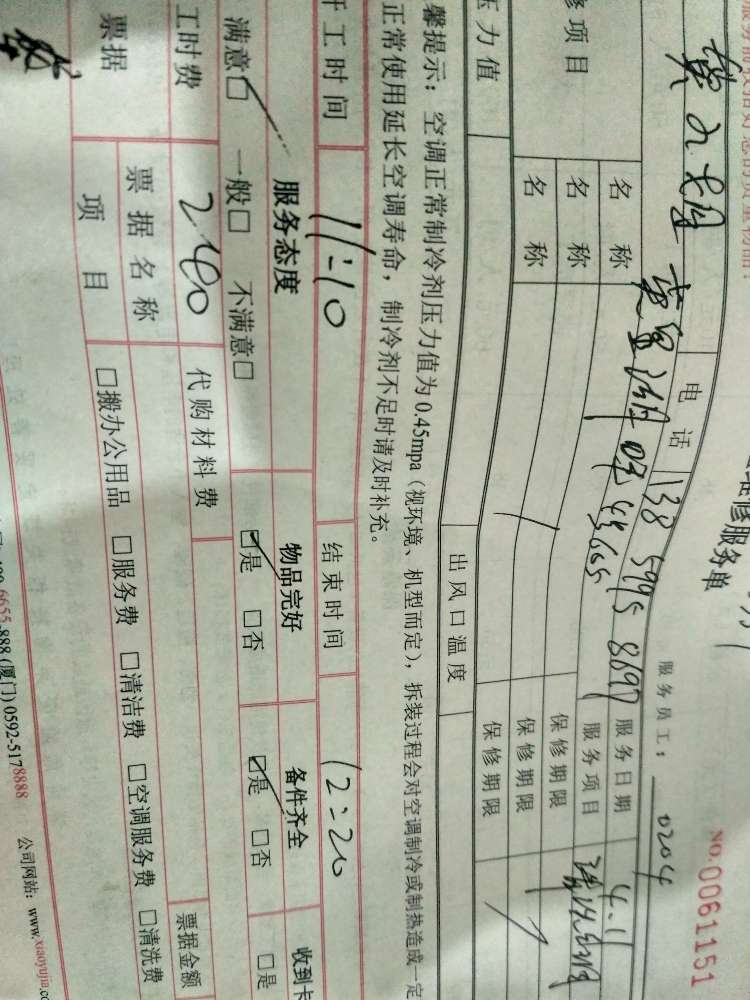 维修服务单
NO.00611151
服务员工：0204
电话 138 5995 8697
服务日期 4.11
修项目
名称
服务项目
名称
保修期限
名称
保修期限
保修期限
压力值
出风口温度
馨提示：空调正常制冷剂压力值为0.45mpa（视环境、机型而定），拆装过程会对空调制冷或制热造成一定
正常使用延长空调寿命，制冷剂不足时请及时补充。
开工时间 11:10 结束时间 12:20
服务态度 物品完好 备件齐全 收到卡
满意□ 一般□ 不满意□ □是 □否 □是 □否 □是
工时费 240 代购材料费
票据 票据名称 票据金额
项目 □搬办公用品 □服务费 □清洁费 □空调服务费 □清洗费
6655-888 (厦门) 0592-5178888 公司网站：www.xiaoyujia.co